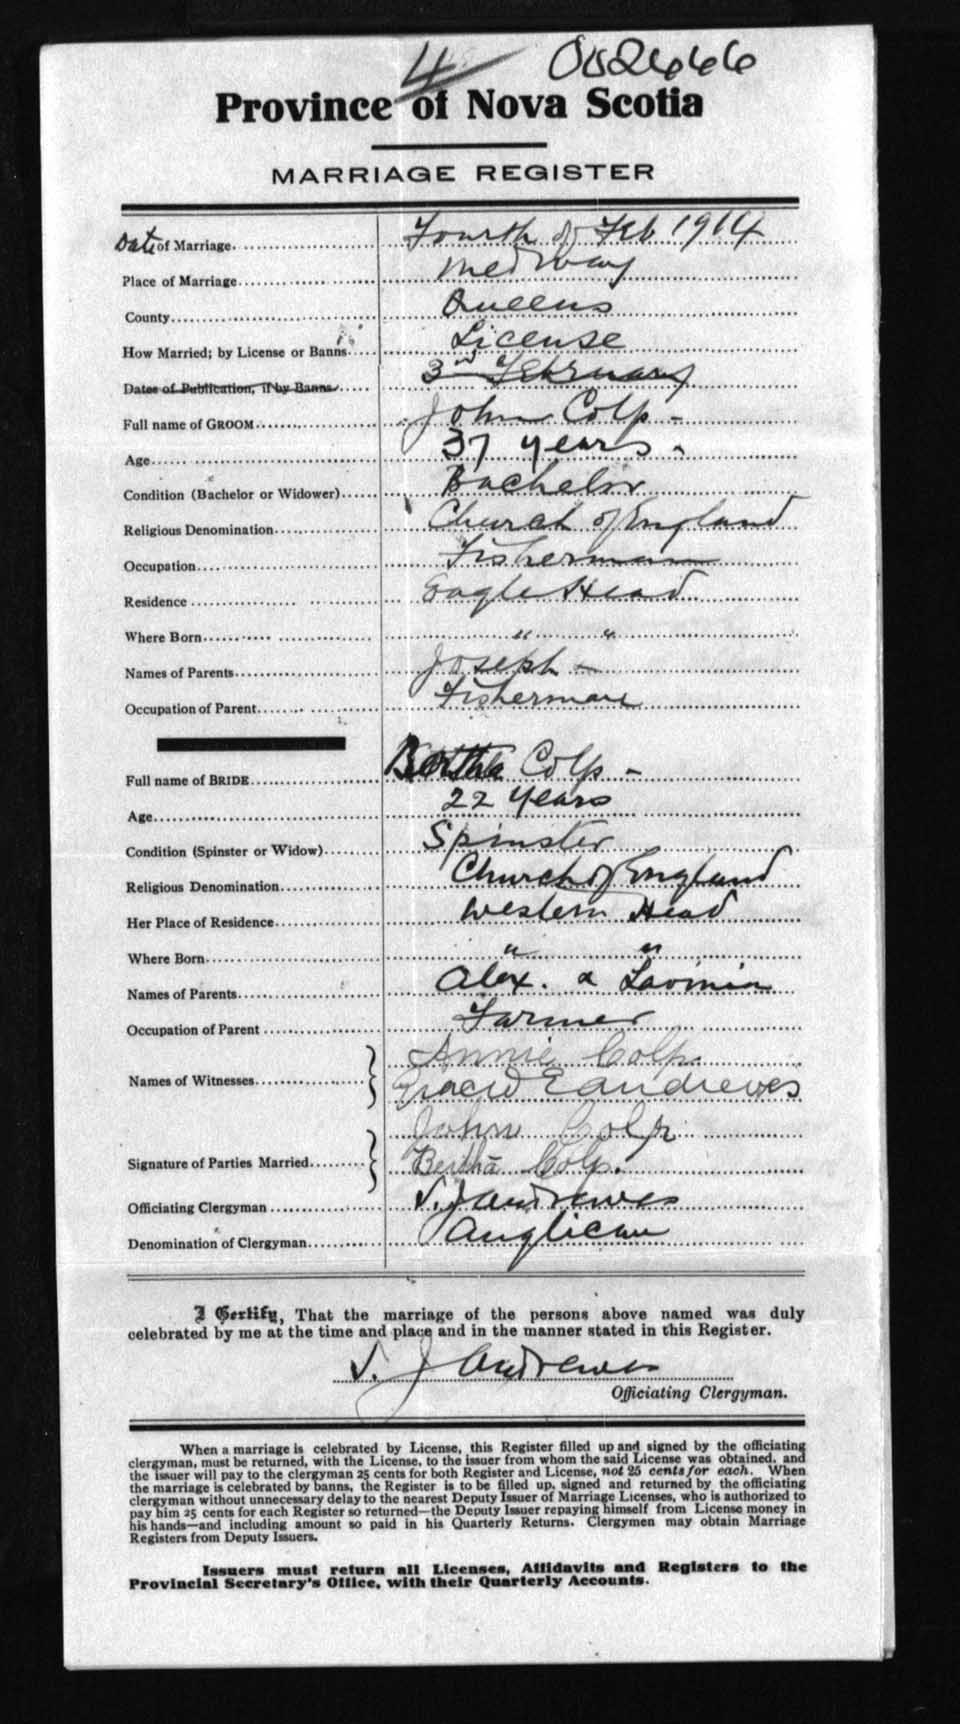 4 002666
Province of Nova Scotia
MARRIAGE REGISTER
Date of Marriage Fourth of Feb 1914
Place of Marriage Medway
County Queens
How Married; by License or Banns License
Dates of Publication, if by Banns 3rd February
Full name of GROOM John Colp -
Age 37 years -
Condition (Bachelor or Widower) Bachelor
Religious Denomination Church of England
Occupation Fisherman
Residence Eagle Head
Where Born " "
Names of Parents Joseph -
Occupation of Parent Fisherman
Full name of BRIDE Bertha Colp -
Age 22 years
Condition (Spinster or Widow) Spinster
Religious Denomination Church of England
Her Place of Residence Western Head
Where Born " "
Names of Parents Alex. & Lavinia
Occupation of Parent Farmer
Annie Colp.
Names of Witnesses E Andrewes
John Colp
Signature of Parties Married Bertha Colp.
Officiating Clergyman V. J Andrewes
Denomination of Clergyman Anglican
I Certify, That the marriage of the persons above named was duly
celebrated by me at the time and place and in the manner stated in this Register.
V. J Andrewes
Officiating Clergyman.
When a marriage is celebrated by License, this Register filled up and signed by the officiating
clergyman, must be returned, with the License, to the issuer from whom the said License was obtained, and
the issuer will pay to the clergyman 25 cents for both Register and License, not 25 cents for each. When
the marriage is celebrated by banns, the Register is to be filled up, signed and returned by the officiating
clergyman without unnecessary delay to the nearest Deputy Issuer of Marriage Licenses, who is authorized to
pay him 25 cents for each Register so returned—the Deputy Issuer repaying himself from License money in
his hands—and including amount so paid in his Quarterly Returns. Clergymen may obtain Marriage
Registers from Deputy Issuers.
Issuers must return all Licenses, Affidavits and Registers to the
Provincial Secretary's Office, with their Quarterly Accounts.